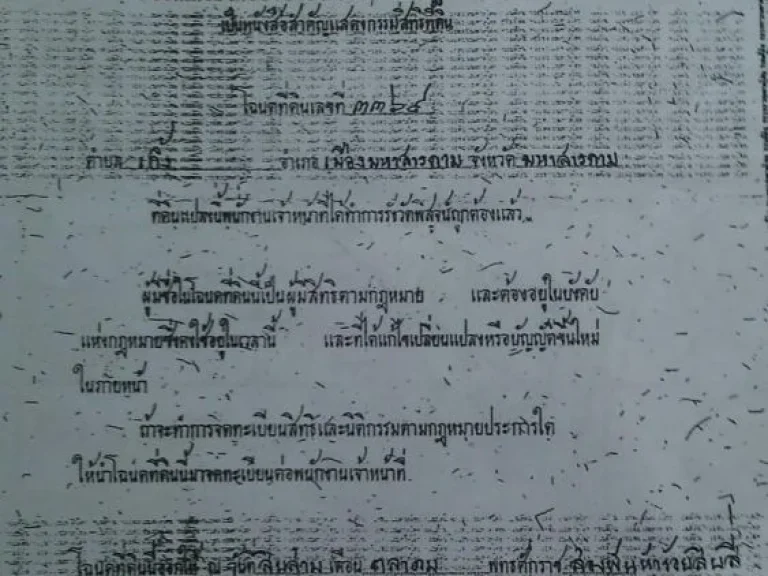 เป็นหนังสือสำคัญแสดงกรรมสิทธิ์ที่ดิน
โฉนดที่ดินเลขที่ ๓๓๖๘
ตำบล เกิ้ง อำเภอ เมืองมหาสารคาม จังหวัด มหาสารคาม
ที่ดินแปลงนี้พนักงานเจ้าหน้าที่ได้ทำการรังวัดพิสูจน์ถูกต้องแล้ว
ผู้มีชื่อในโฉนดที่ดินนี้เป็นผู้มีสิทธิตามกฎหมาย และต้องอยู่ในบังคับ
แห่งกฎหมายซึ่งคงใช้อยู่ในเวลานี้ และที่ได้แก้ไขเปลี่ยนแปลงหรือบัญญัติขึ้นใหม่
ในภายหน้า
ถ้าจะทำการจดทะเบียนสิทธิและนิติกรรมตามกฎหมายประการใด
ให้นำโฉนดที่ดินนี้มาจดทะเบียนต่อพนักงานเจ้าหน้าที่
โฉนดที่ดินนี้ออกให้ ณ วันที่ สิบสาม เดือน ตุลาคม พุทธศักราช สองพันห้าร้อยสิบสี่